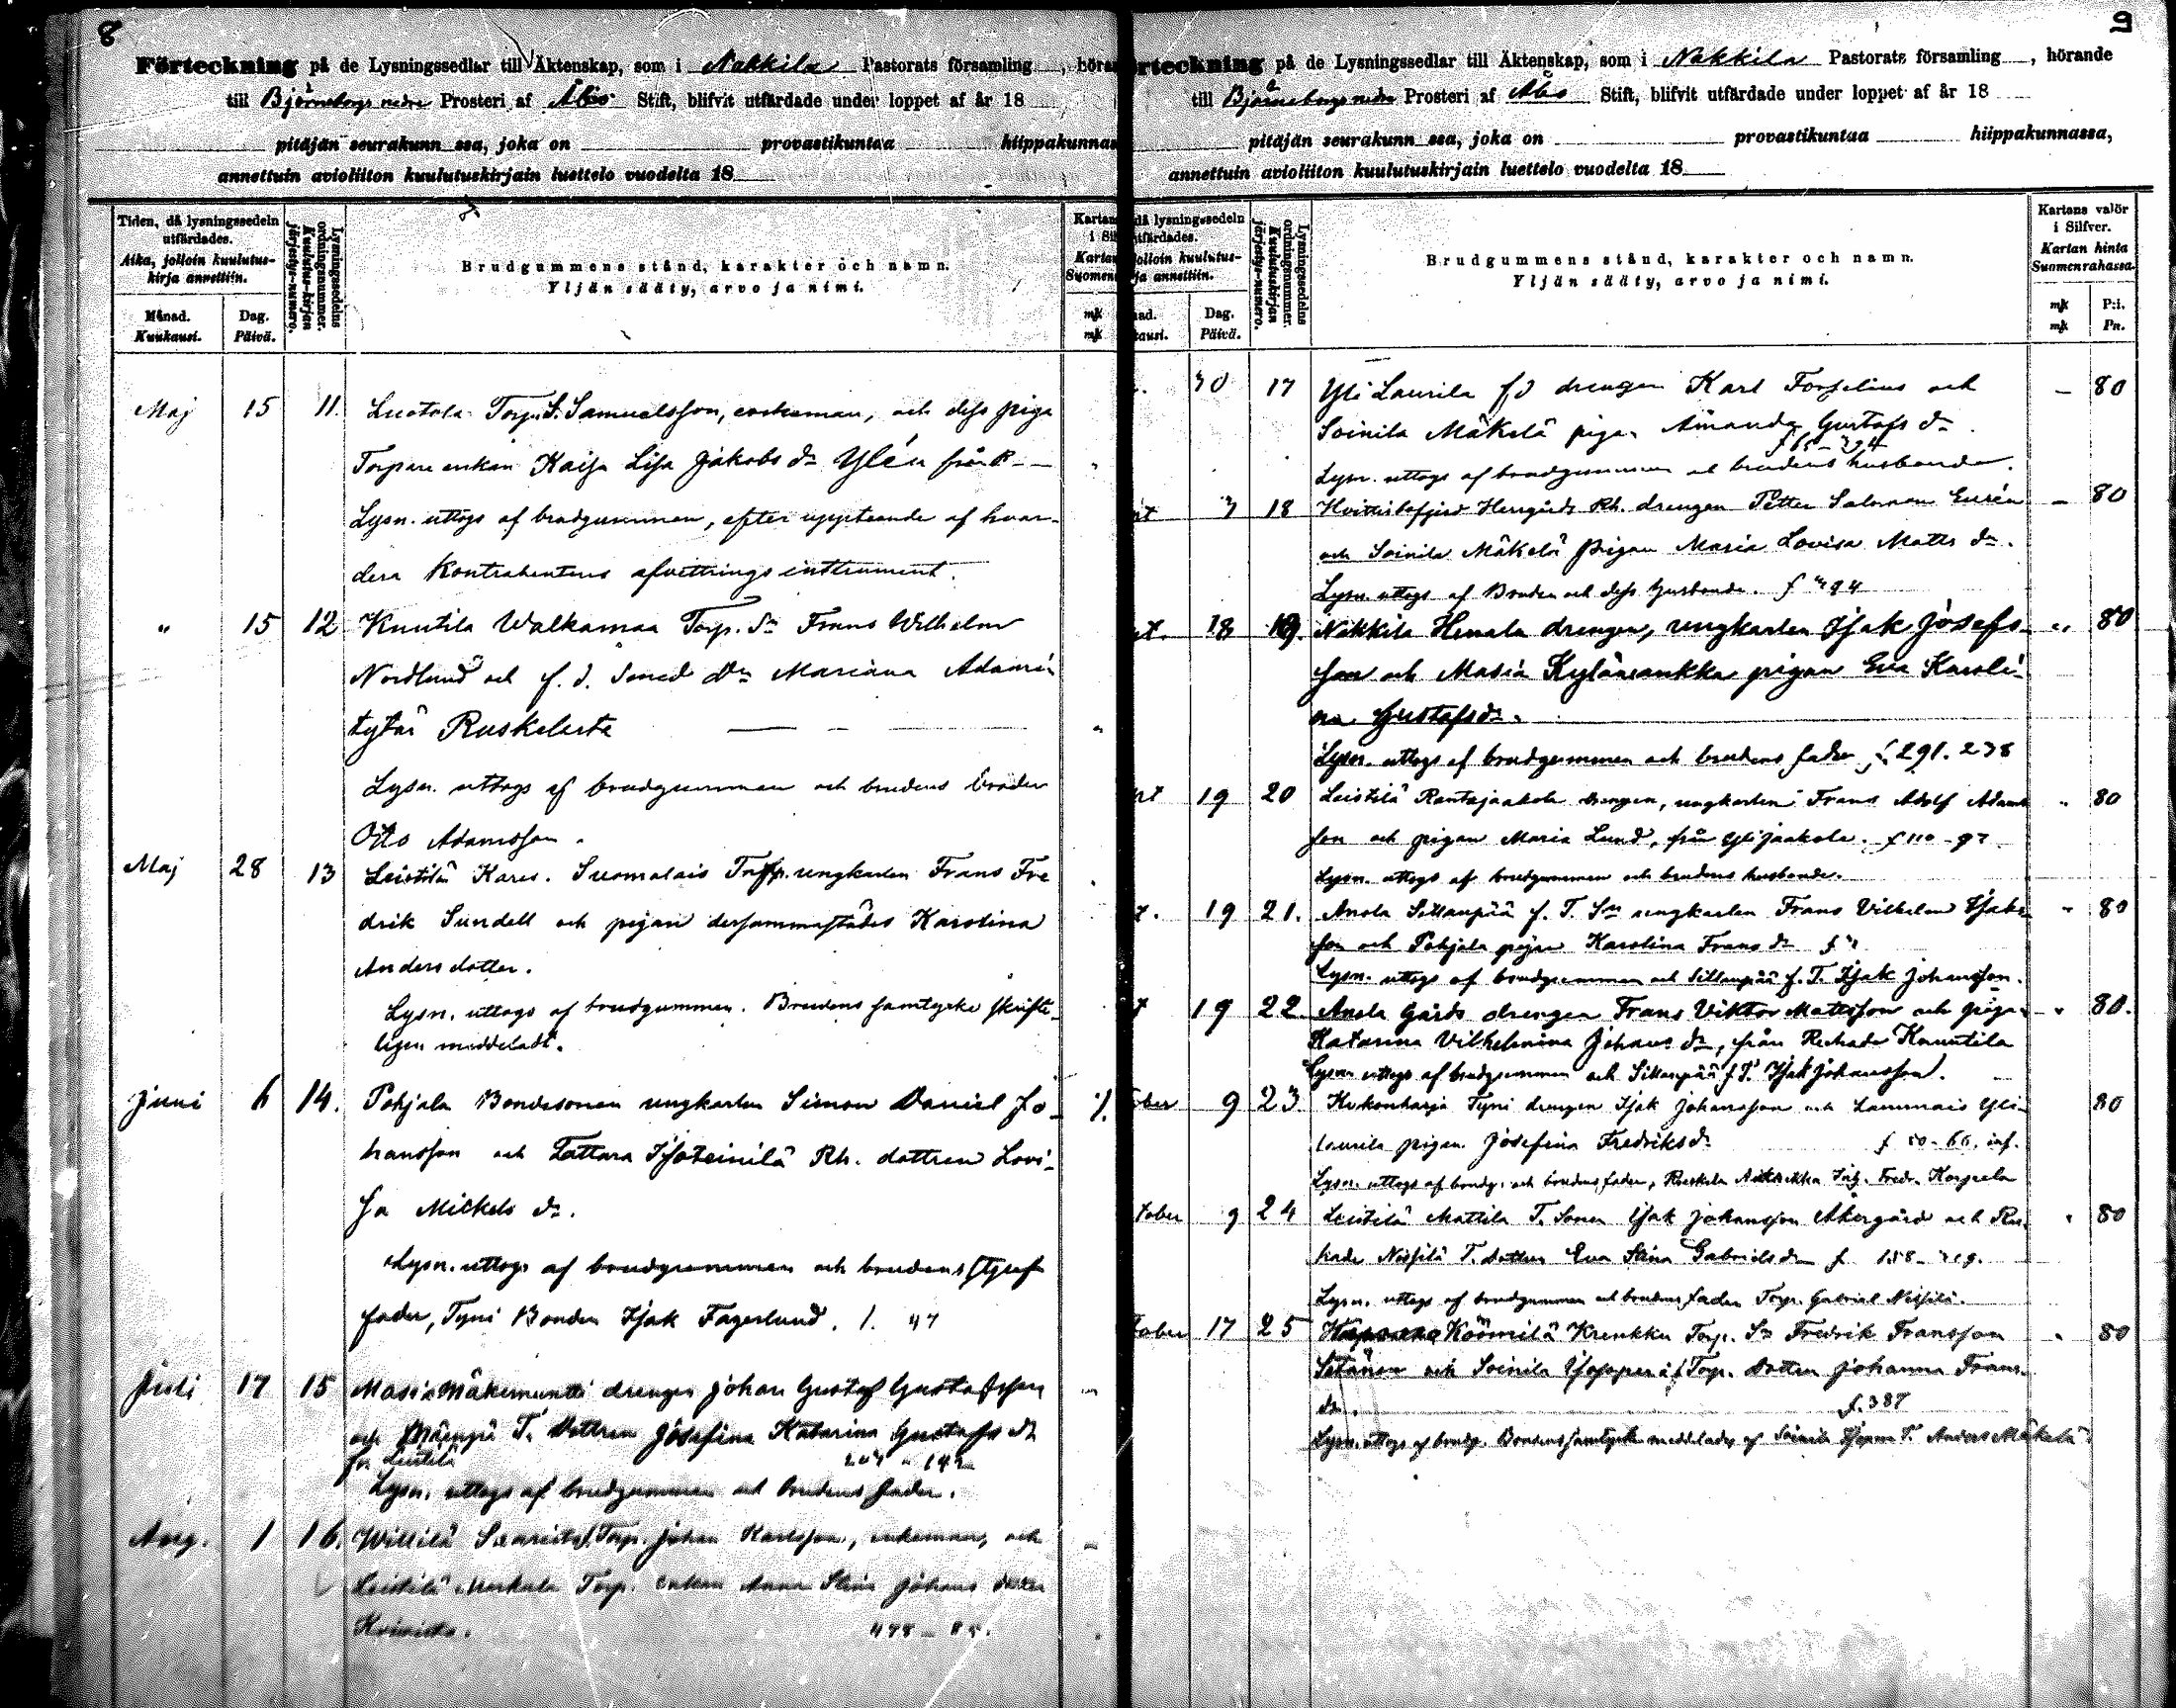 8
Förteckning på de Lysningssedlar till Äktenskap, som i Nakkila Pastorats församling, höran
till Björneborgs nedre Prosteri af Åbo Stift, blifvit utfärdade under loppet af år 18
pitäjän seurakunn ssa, joka on provastikuntaa hiippakunnas
annettuin avioliiton kuulutuskirjain luettelo vuodelta 18
Tiden, då lysningssedeln utfärdades.
Aika, jolloin kuulutus-kirja annettiin.
Månad. Kuukausi.
Dag. Päivä.
Lysningssedelns ordningsnummer.
Kuulutus-kirjan järjestys-numero.
Brudgummens stånd, karakter och namn.
Yljän sääty, arvo ja nimi.
Kartans
i Sil
Kartan
Suomen
mk
mk
Maj 15 11. Luotola Torp. S. Samuelsson, enkeman, och dess piga
Torpare enkan Kaisa Lisa Jakobs dr Ylén från
Lysn. uttogs af brudgummen, efter uppteende af hvar-
dera Kontrahentens afvittrings instrument.
" 15 12 Knuutila Walkamaa Torp. Sn Frans Wilhelm
Nordlund och f. d. Smed dr Mariana Adamin
tytär Ruskelasta
Lysn. uttogs af brudgummen och brudens broder
Otto Adamsson.
Maj 28 13 Leistilä Kares. Suomalais Torp. ungkarlen Frans Fre
drik Sundell och pigan dersammastädes Karolina
Anders dotter.
Lysn. uttogs af brudgummen. Brudens samtycke skrifte-
ligen meddeladt.
Juni 6 14. Pohjala Bondesonen ungkarlen Simon Daniel Jo-
hansson och Tattara Isoteinilä Rh. dottren Lovi-
sa Mickels dr.
Lysn. uttogs af brudgummen och brudens styf
fader, Tyni Bonden Isak Fagerlund. 1. 47
Juli 17 15 Masia Mäkimuntti drengen Johan Gustaf Gustafsson
och T. Dottren Josefina Katarina Gustafs dr
fr. Leistilä
Lysn. uttogs af brudgummen och brudens fader.
Aug. 1 16. Willilä Saarists Torp. Johan Karlsson, enkeman, och
Leistilä Markula Torp. enkan Anna Stina Johans dotter
Koivisto.
9
rteckning på de Lysningssedlar till Äktenskap, som i Nakkila Pastorats församling, hörande
till Björneborgs nedre Prosteri af Åbo Stift, blifvit utfärdade under loppet af år 18
pitäjän seurakunn ssa, joka on provastikuntaa hiippakunnassa,
annettuin avioliiton kuulutuskirjain luettelo vuodelta 18
då lysningssedeln
utfärdades.
jolloin kuulutus-
ja annettiin.
nad.
kausi.
Dag. Päivä.
Lysningssedelns ordningsnummer.
Kuulutuskirjan järjestys-numero.
Brudgummens stånd, karakter och namn.
Yljän sääty, arvo ja nimi.
Kartans valör i Silfver.
Kartan hinta Suomenrahassa.
mk P:i.
mk Pn.
30 17 Yli Laurila fd drengen Karl Forselius och – 80
Soinila Mäkelä pigan Amanda Gustafs dr
Lysn. uttogs af brudgummen och brudens husbonde.
18 Hvittisbofjerd Herrgårds Rh. drengen Petter Salomon Eurén – 80
och Soinila Mäkelä pigan Maria Lovisa Matts dr.
Lysn. uttogs af Bruden och dess husbonde.
18 19. Nakkila Hemala drengen, ungkarlen Isak Josefs- " 80
son och Masia Kylänsankka pigan Eva Karoli-
na Gustafs dr.
Lysn. uttogs af brudgummen och brudens fader f 291. 238
19 20 Leistilä Rantajaakola drengen, ungkarlen Frans Adolf Adams " 80
son och pigan Maria Lund, från Ylijaakola.
Lysn. uttogs af brudgummen och brudens husbonde.
19 21. Anola Sillanpää f. T. Sn ungkarlen Frans Vilhelm Isaks " 80
son och Pohjala pigan Karolina Frans dr
Lysn. uttogs af brudgummen och Sillanpää f. T. Isak Johansson.
19 22 Anola Gårds drengen Frans Viktor Mattsson och pigan " 80.
Katarina Vilhelmina Johans dr, från Ruhade Knuutila
Lysn. uttogs af brudgummen och Sillanpää f. T. Isak Johansson.
ober 9 23 Kukonharja Tyni drengen Isak Johansson och Lammais Yli- 80
laurila pigan Josefina Fredriks dr f 50-66. inf.
Lysn. uttogs af brudg. och brudens fader, Ruskela Torp. Fredr. Korpela
tober 9 24 Leistilä Mattila T. Sonen Isak Johansson Åkergård och Ru- " 80
hade Nissilä T. dottren Eva Stina Gabriels dr
Lysn. uttogs af brudgummen och brudens fader Torp. Gabriel Nissilä.
tober 17 25 Köömilä Krenkku Torp. Sn Fredrik Fransson " 80
Setänen och Soinila Torp. dotter Johanna Frans
dr. f. 387
Lysn. uttogs af brudg. Brudens samtycke meddelades af Soinila T. Anders Mäkelä